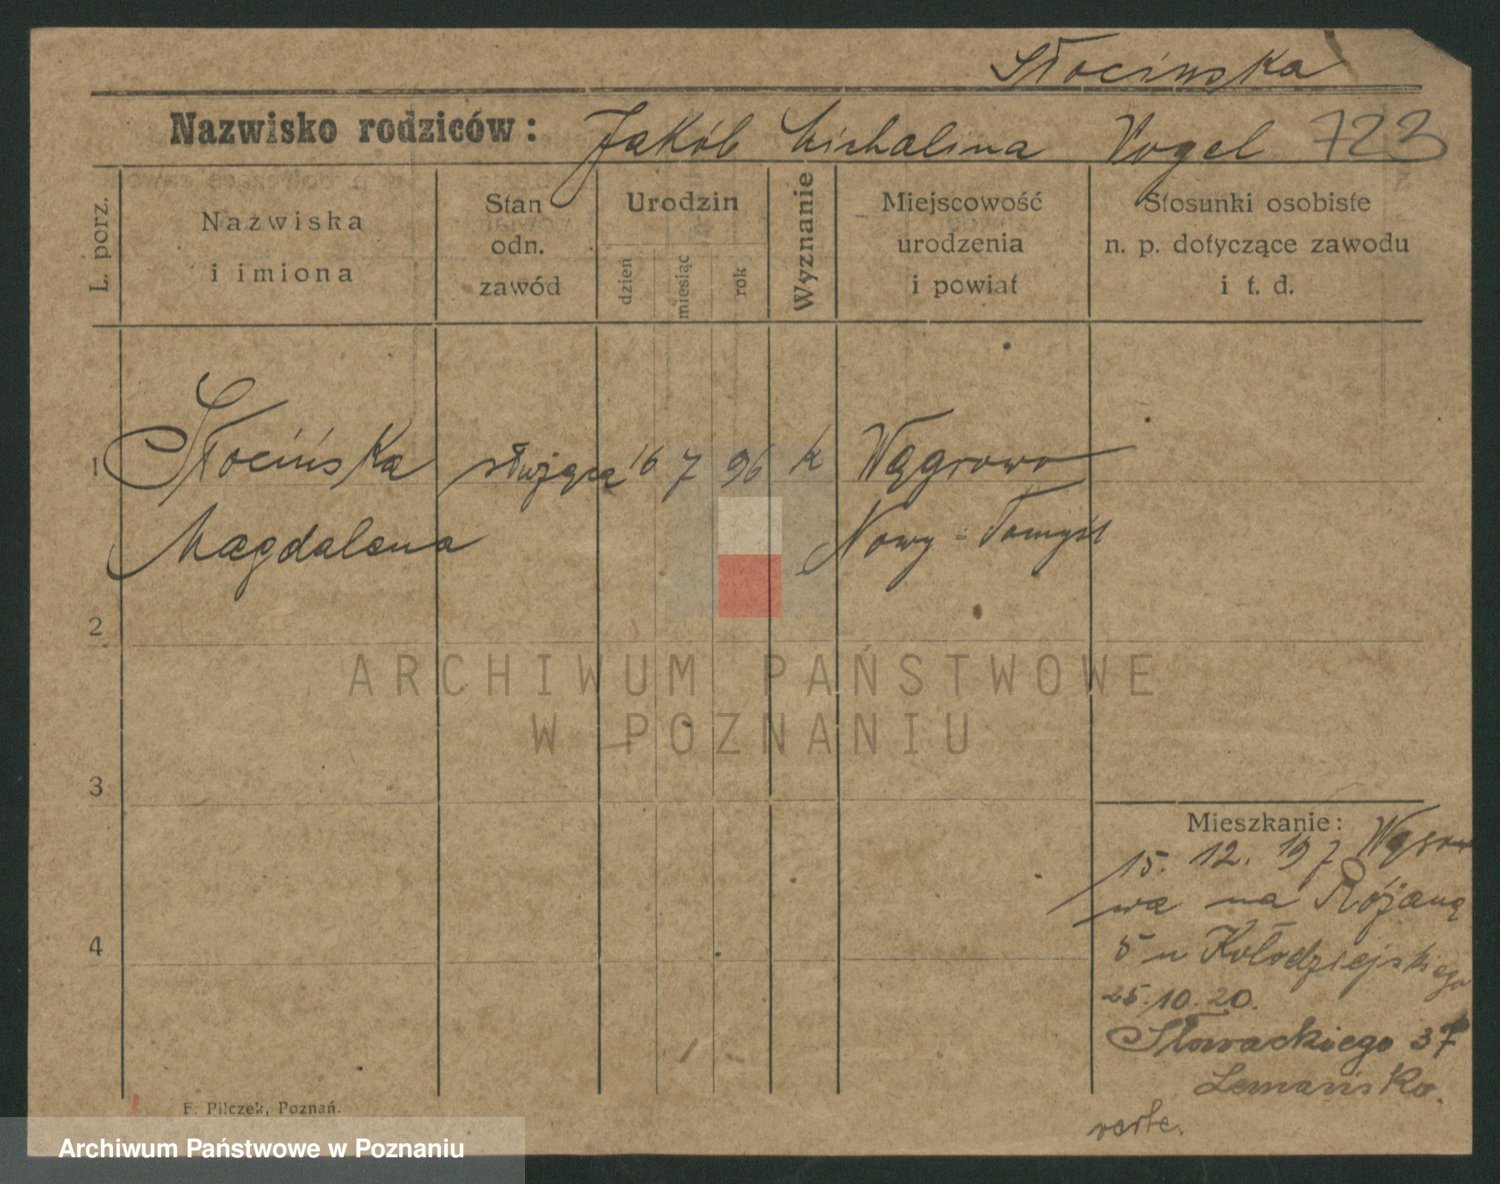 Słocińska
Nazwisko rodziców: Jakób Michalina Vogel 723
L. porz.
Nazwiska
i imiona
Stan
odn.
zawód
Urodzin
dzień
miesiąc
rok
Wyznanie
Miejscowość
urodzenia
i powiat
Stosunki osobiste
n. p. dotyczące zawodu
i t. d.
1 Słocińska służąca 16 7 96 k Wągrowo
Magdalena Nowy-Tomyśl
2
ARCHIWUM PAŃSTWOWE
W POZNANIU
3
Mieszkanie:
15. 12. 19 z Wągro
wa na Różaną
4
5 u Kołodziejskiego
25.10.20.
Słowackiego 37
Lemańska.
verte.
F. Pilczek, Poznań.
Archiwum Państwowe w Poznaniu